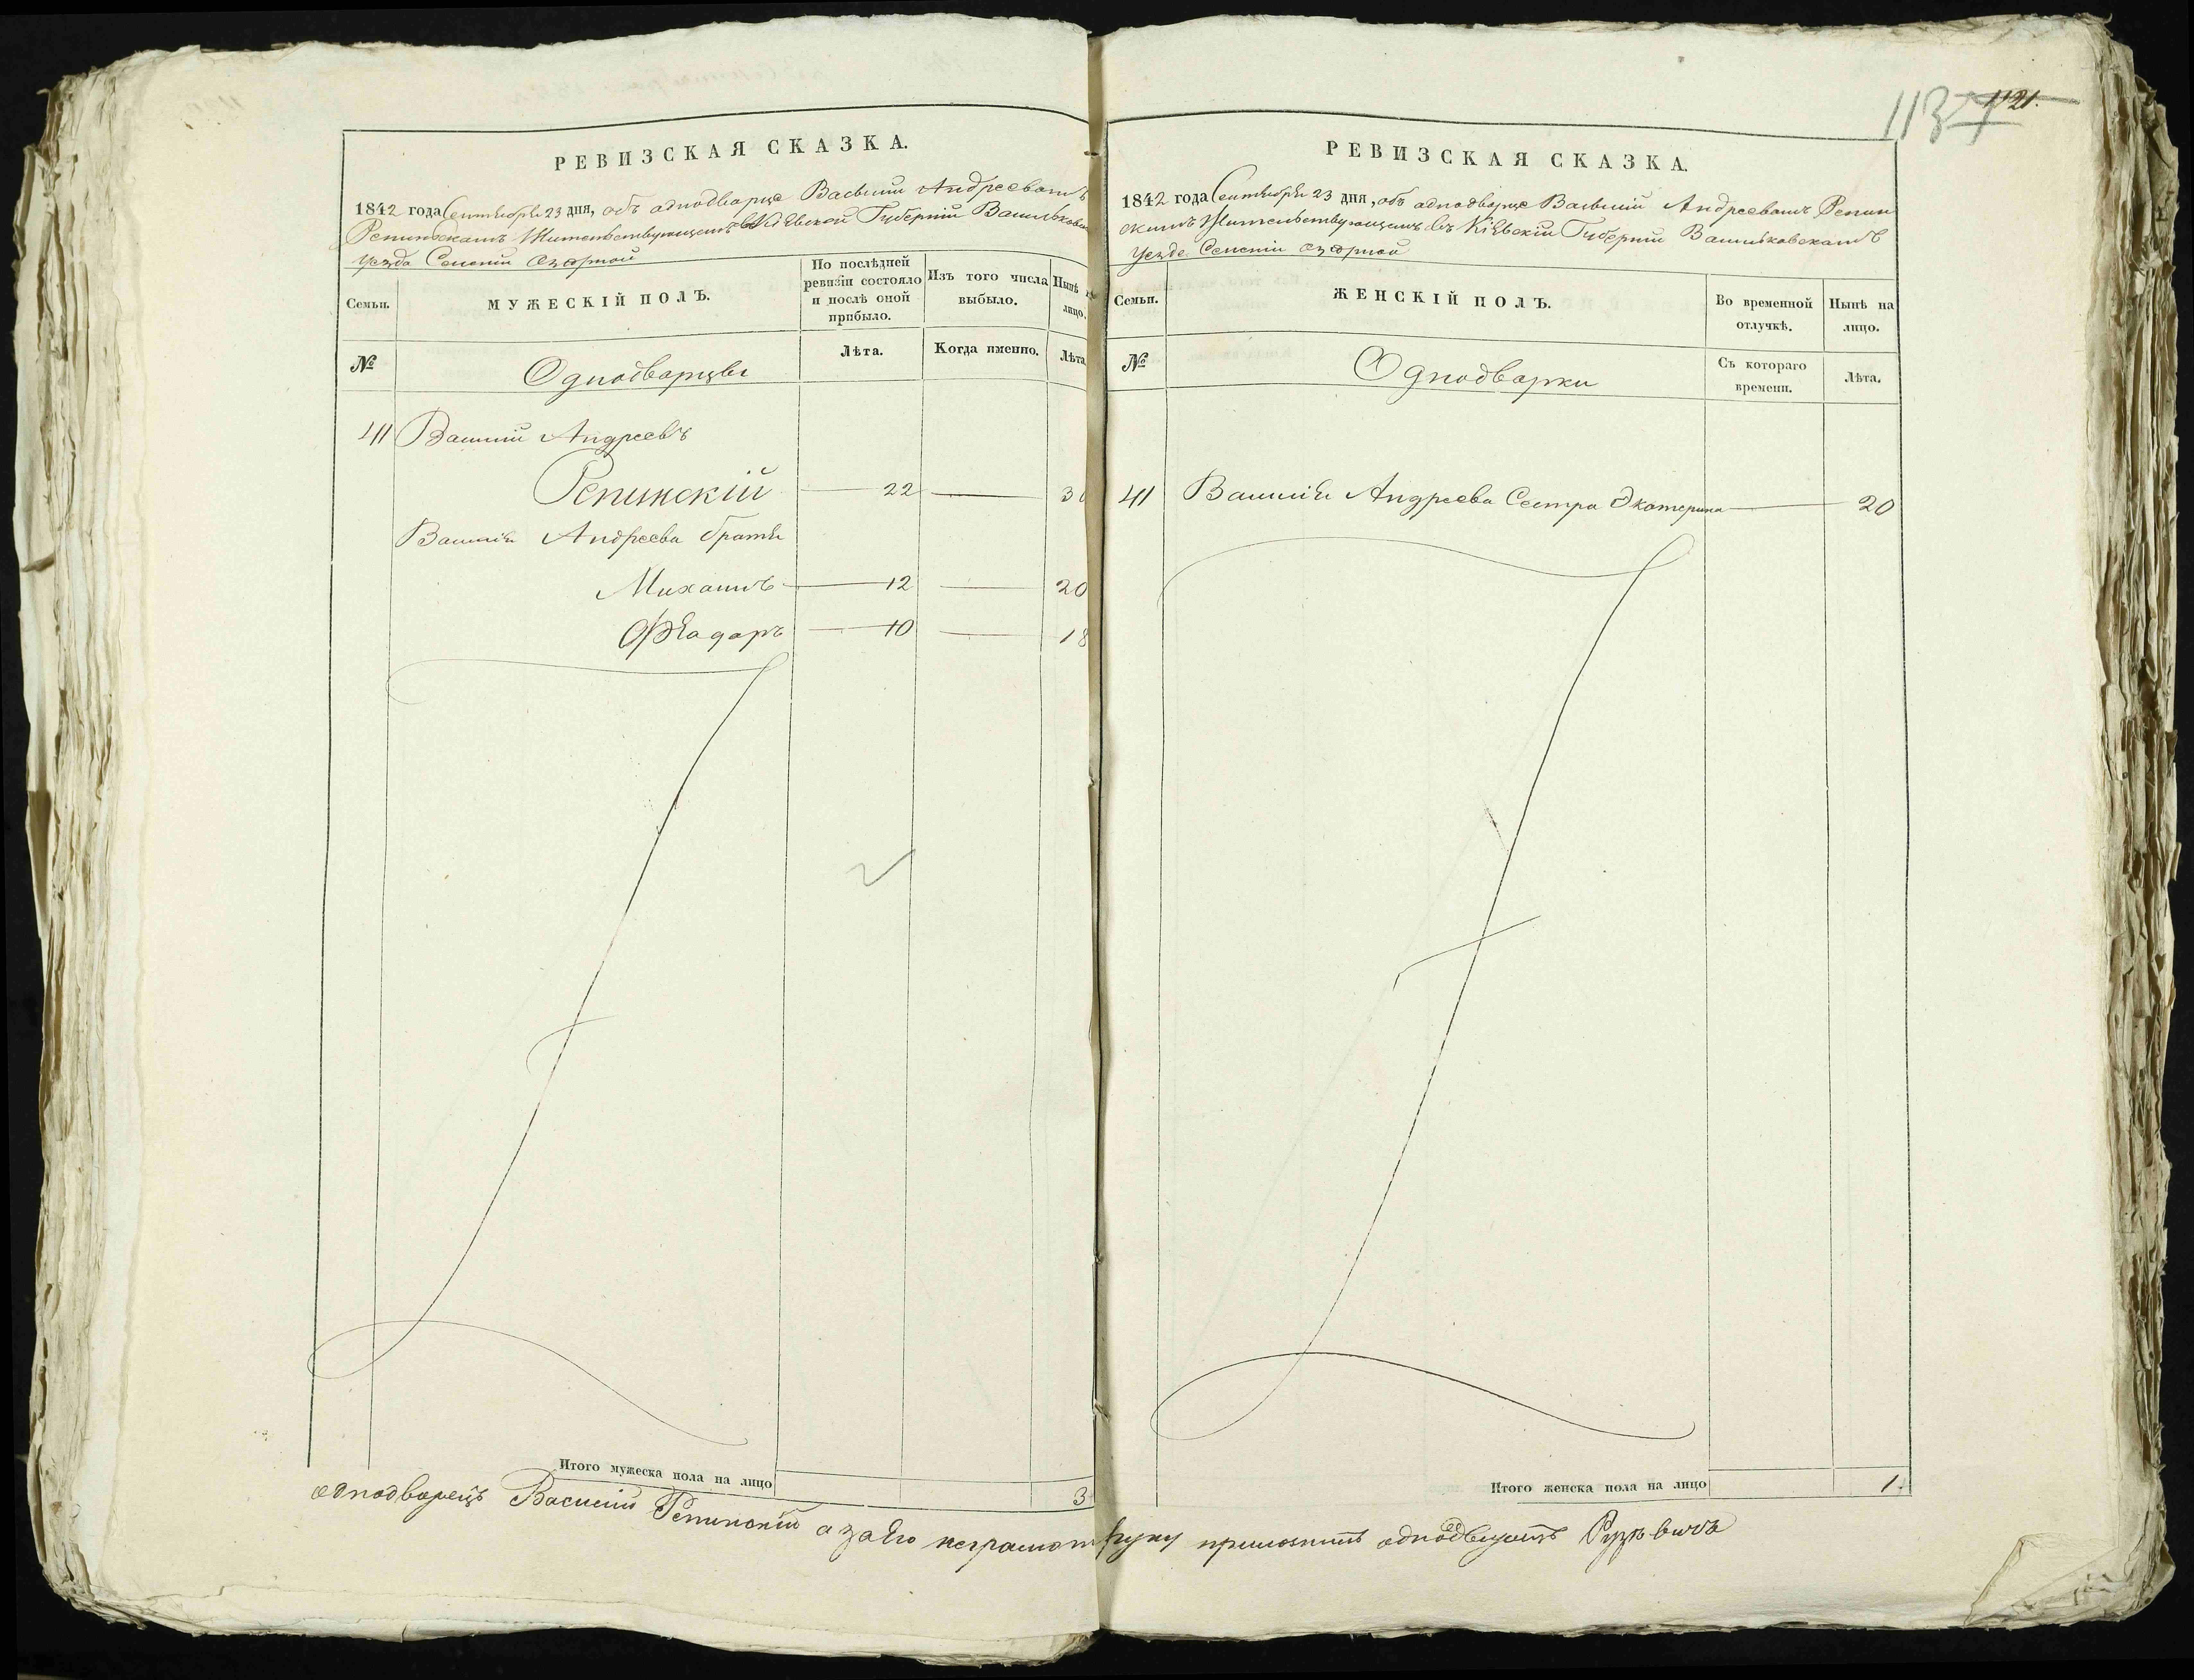 РЕВИЗСКАЯ СКАЗКА.
1842 года Сентебря 23 дня, объ аднодварце Васьлий Андреевамъ
Репинскамъ Жительствующемъ въ Кіевской Губерніи
уезда Селеніи Озорной
Семьи.
МУЖЕСКІЙ ПОЛЪ.
По послѣдней
ревизіи состояло
и послѣ оной
прибыло.
Изъ того числа
выбыло.
Нынѣ
лицо.
№
Однодварцы
Лѣта.
Когда именно.
Лѣта
41 Василий Андреевъ
Репинскій 22
Василия Андреева братья
Михаилъ 12 20
Фѣадаръ 10 18
Итого мужеска пола на лицо
3
1121.
РЕВИЗСКАЯ СКАЗКА.
1842 года Сентебря 23 дня, объ аднодварце Васьлий Андреевамъ Репин
скимъ Жительствующемъ въ Кіевскій Губерніи Васильковскамъ
Уезде Селеніи Озорной
Семьи.
ЖЕНСКІЙ ПОЛЪ.
Во временной
отлучкѣ.
Нынѣ на
лицо.
№
Однодварки
Съ котораго
времени.
Лѣта.
41 Василия Андреева Сестра Экатерина 20
Итого женска пола на лицо 1.
однодворецъ Василий Репинский а за его неграмот руку приложилъ